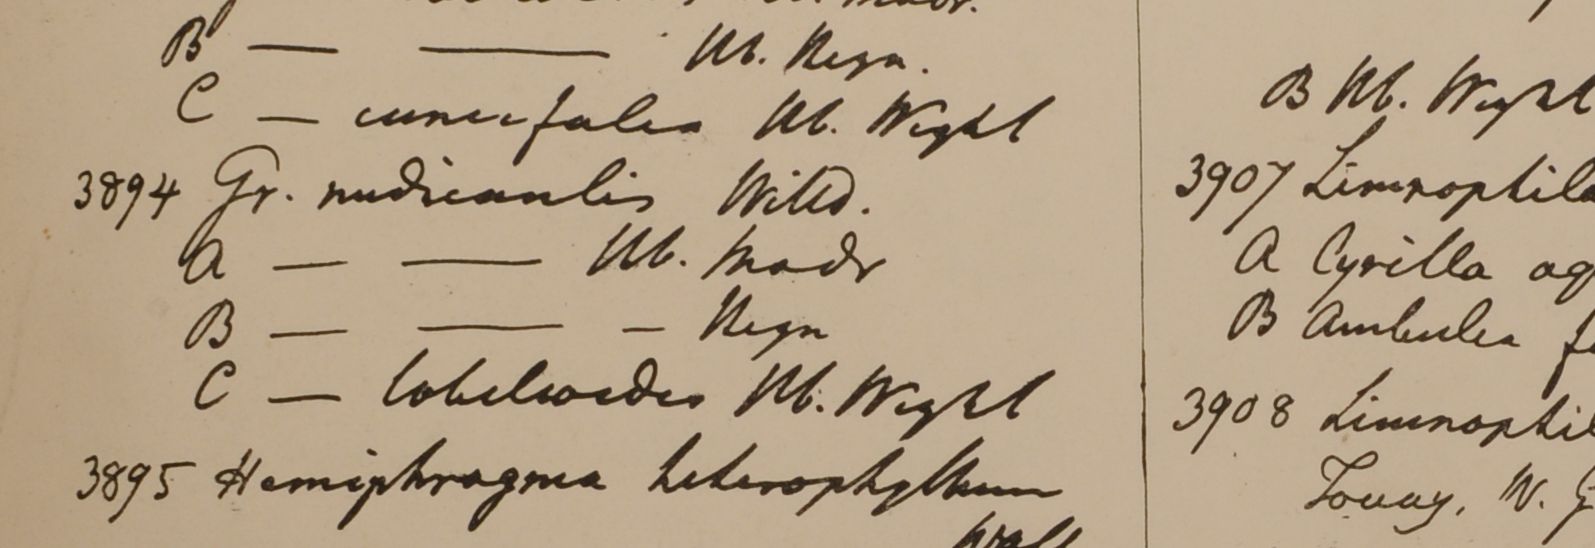 B — — Hb. Heyn.
C — cuneifolia Hb. Wight
3894 Gr. nudicaulis Willd.
A — — Hb. Madr
B — — — Heyn
C — lobelioides Hb. Wight
3895 Hemiphragma heterophyllum
Wall
B Hb. Wight
3907 Limnophila
A Cyrilla aq
B Ambulia
3908 Limnophil
Tovay, W. G